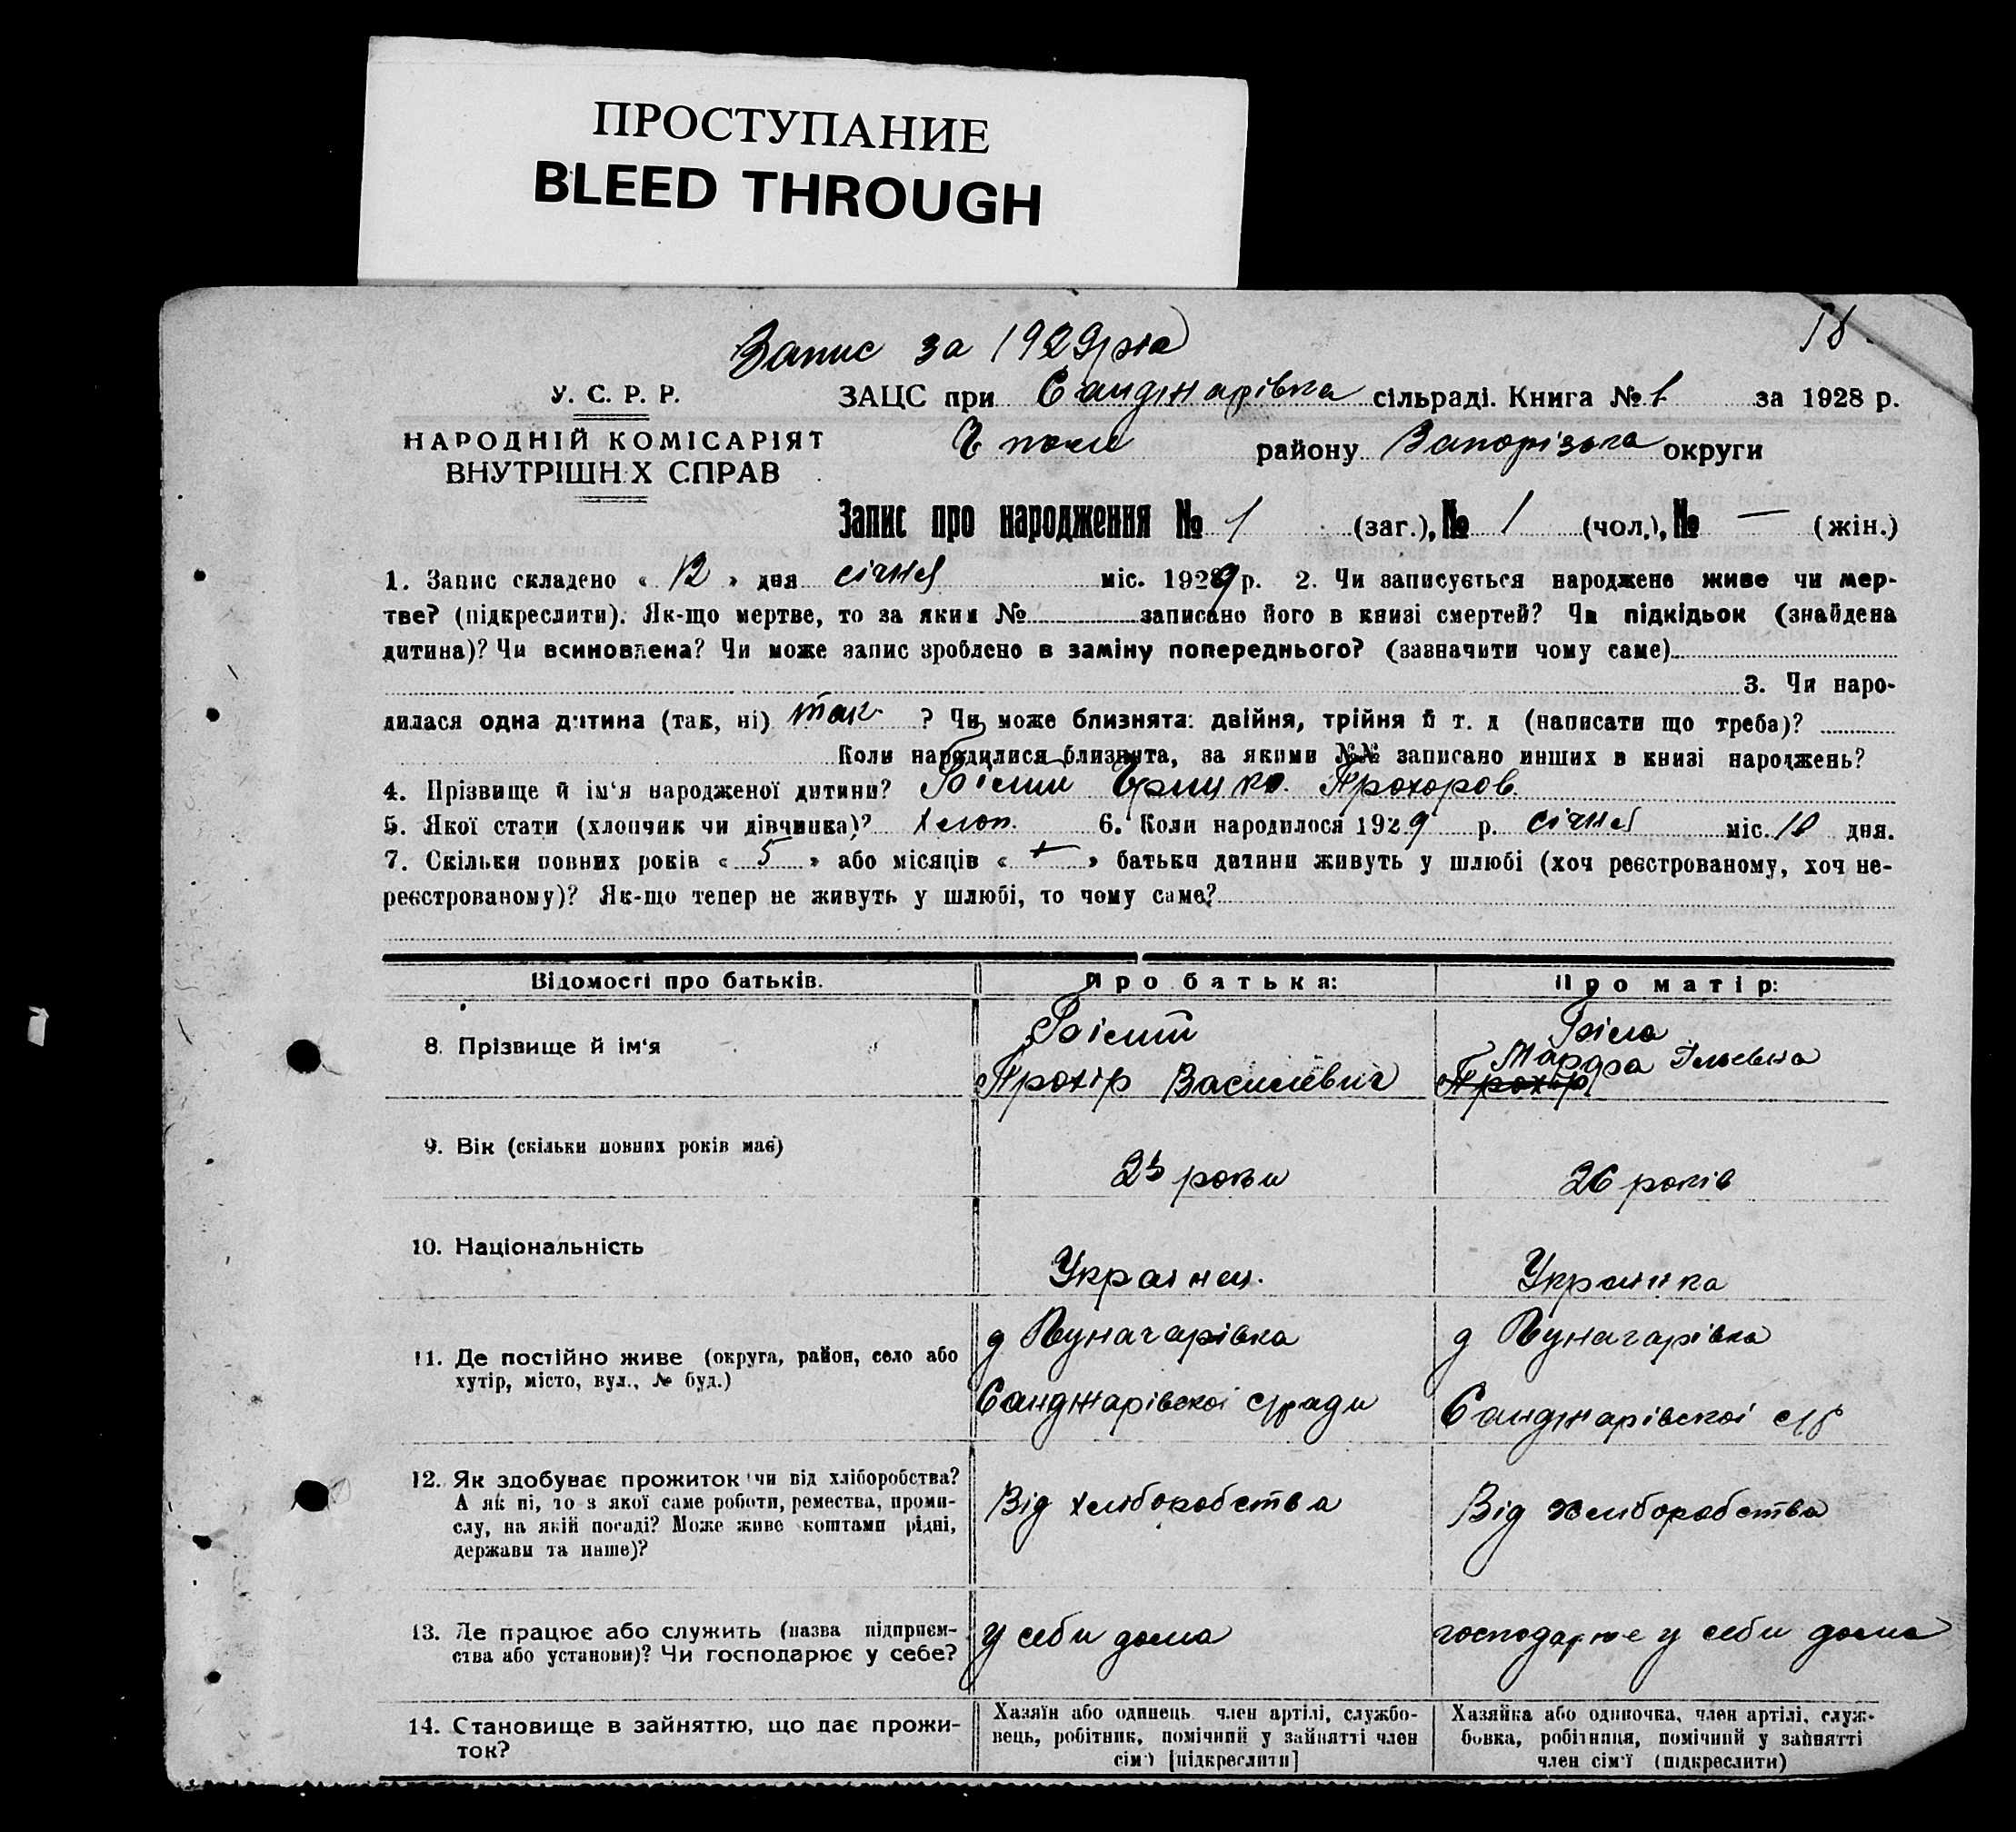 ПРОСТУПАНИЕ
BLEED THROUGH
Запис за 1929 рік
18
У. С. Р. Р.
ЗАЦС при Санджарівка сільраді. Книга № 1 за 1928 р.
НАРОДНІЙ КОМІСАРІЯТ
району Запорізька округи
ВНУТРІШНІХ СПРАВ
Запис про народження № 1 (заг.), № 1 (чол.), № — (жін.)
1. Запис складено « 12 » дня січня міс. 1929 р. 2. Чи записується народжене живе чи мер-
тве? (підкреслити). Як-що мертве, то за яким № записано його в книзі смертей? Чи підкідьок (знайдена
дитина)? Чи всиновлена? Чи може запис зроблено в заміну попереднього? (зазначити чому саме)
3. Чи наро-
дилася одна дитина (так, ні) так ? Чи може близнята: двійня, трійня й т. д (написати що треба)?
Коли народилися близнята, за якими №№ записано инших в книзі народжень?
4. Прізвище й ім'я народженої дитини? Білий Грицко Прохоров.
5. Якої статі (хлопчик чи дівчинка)? хлоп. 6. Коли народилося 1929 р. січня міс. 10 дня.
7. Скільки повних років « 5 » або місяців « » батьки дитини живуть у шлюбі (хоч реєстрованому, хоч не-
реєстрованому)? Як-що тепер не живуть у шлюбі, то чому саме?
Відомості про батьків. Про батька: Про матір:
Білий Біла
8. Прізвище й ім'я Марфа Ільевна
Прохір Василевич Прохір
9. Вік (скільки повних років має)
23 роки 26 років
10. Національність
Українец. Українка
д Луначарівка д Луначарівка
11. Де постійно живе (округа, район, село або
хутір, місто, вул., № буд.)
Санджарівскоі с/ради Санджарівскоі с/р
12. Як здобуває прожиток чи від хліборобства?
А як ні, то з якої саме роботи, ремества, проми-
Від хлиборобства Від хлиборобства
слу, на якій посаді? Може живе коштами рідні,
держави та инше)?
13. Де працює або служить (назва підприєм- у себи дома господарює у себи дома
ства або установи)? Чи господарює у себе?
14. Становище в зайняттю, що дає прожи-
ток?
Хазяїн або одинець член артілі, службо-
вець, робітник, помічний у зайнятті член
сім'ї [підкреслити]
Хазяйка або одиночка, член артілі, служ-
бовка, робітниця, помічний у зайнятті
член сім'ї (підкреслити)